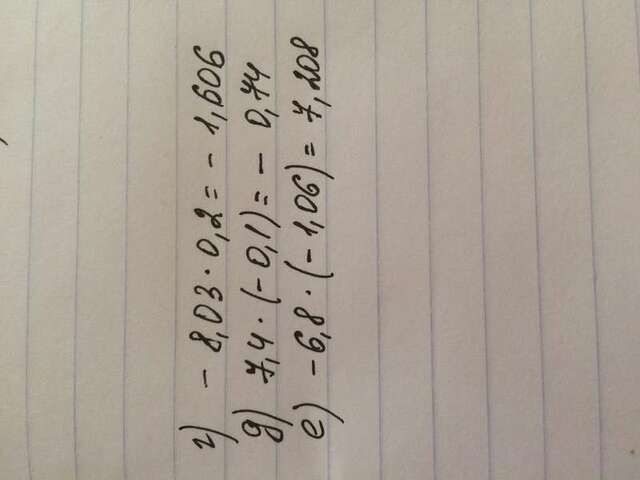 г) - 8,03 · 0,2 = - 1,606
д) 7,4 · (- 0,1) = - 0,74
е) - 6,8 · (- 1,06) = 7,208